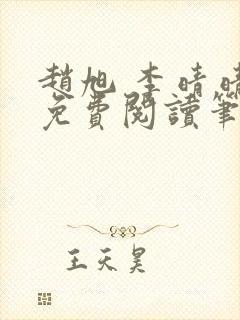 趙旭 李晴晴
免費閱讀筆
王天昊